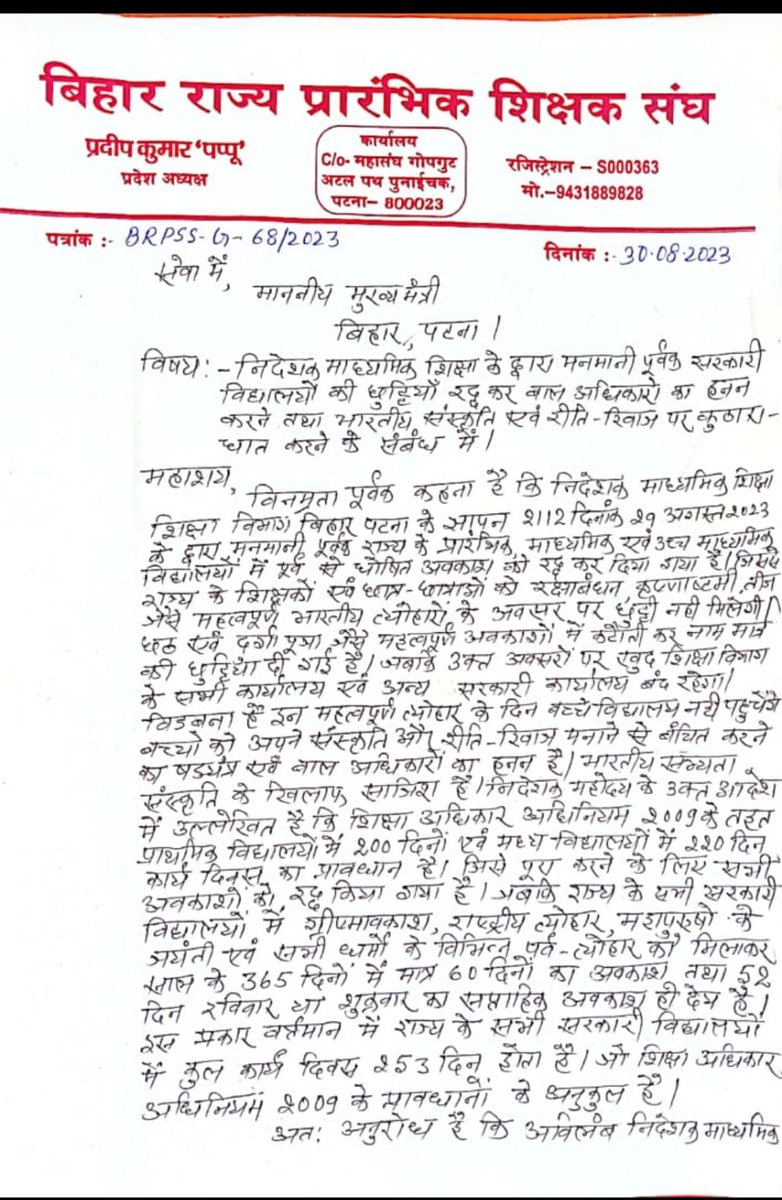 बिहार राज्य प्रारंभिक शिक्षक संघ
प्रदीप कुमार 'पप्पू'
प्रदेश अध्यक्ष
कार्यालय
C/o- महासंघ गोपगुट
अटल पथ पुनाईचक,
पटना– 800023
रजिस्ट्रेशन – S000363
मो.–9431889828
पत्रांक :- BRPSS-G-68/2023
दिनांक :- 30.08.2023
सेवा में,
माननीय मुख्यमंत्री
बिहार, पटना।
विषय:- निदेशक माध्यमिक शिक्षा के द्वारा मनमानी पूर्वक सरकारी
विद्यालयों की छुट्टियाँ रद्द कर बाल अधिकारो का हनन
करने तथा भारतीय संस्कृति एवं रीति-रिवाज पर कुठारा-
घात करने के संबंध में।
महाशय,
विनम्रता पूर्वक कहना है कि निदेशक माध्यमिक शिक्षा
शिक्षा विभाग बिहार पटना के ज्ञापन 2112 दिनांक 29 अगस्त 2023
के द्वारा मनमानी पूर्वक राज्य के प्रारंभिक, माध्यमिक एवं उच्च माध्यमिक
विद्यालयों में पूर्व से घोषित अवकाश को रद्द कर दिया गया है। जिससे
राज्य के शिक्षकों एवं छात्र-छात्राओं को रक्षाबंधन, कृष्णाष्टमी, तीज
जैसे महत्वपूर्ण भारतीय त्योहारों के अवसर पर छुट्टी नही मिलेगी।
छठ एवं दुर्गा पूजा जैसे महत्वपूर्ण अवकाशों में कटौती कर नाम मात्र
की छुट्टियां दी गई है। जबकि उक्त अवसरों पर खुद शिक्षा विभाग
के सभी कार्यालय एवं अन्य सरकारी कार्यालय बंद रहेगा।
विडंबना है इन महत्वपूर्ण त्योहार के दिन बच्चे विद्यालय नही पहुचेंगे
बच्चो को अपने संस्कृति और रीति-रिवाज मनाने से बंचित करने
का षडयंत्र एवं बाल अधिकारों का हनन है। भारतीय सभ्यता
संस्कृति के खिलाफ साजिश है। निदेशक महोदय के उक्त आदेश
में उल्लेखित है कि शिक्षा अधिकार अधिनियम 2009 के तहत
प्राथमिक विद्यालयों में 200 दिनों एवं मध्य विद्यालयों में 220 दिन
कार्य दिवस का प्रावधान है। जिसे पूरा करने के लिए सभी
अवकाशों को रद्द किया गया है। जबकि राज्य के सभी सरकारी
विद्यालयों में ग्रीष्मावकाश, राष्ट्रीय त्योहार, महापुरुषो के
जयंती एवं सभी धर्मो के विभिन्न पर्व-त्योहार को मिलाकर
साल के 365 दिनों में मात्र 60 दिनों का अवकाश तथा 52
दिन रविवार या शुक्रवार का सप्ताहिक अवकाश ही देय है।
इस प्रकार वर्तमान में राज्य के सभी सरकारी विद्यालयों
में कुल कार्य दिवस 253 दिन होता है। जो शिक्षा अधिकार
अधिनियम 2009 के प्रावधानों के अनुकुल है।
अत: अनुरोध है कि अविलंब निदेशक माध्यमिक